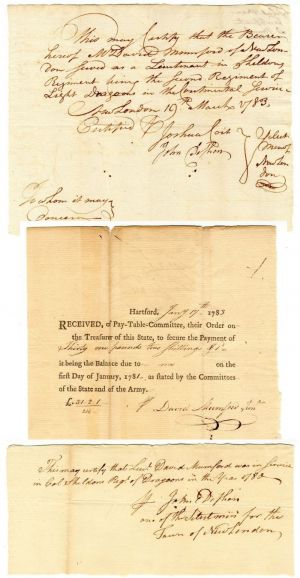 This may Certify that the Bearer
hereof Mr David Mumford of New Lon-
don Served as a Lieutenant in Sheldons
Regiment being the Second Regiment of
Light Dragoons in the Continental Service
New London 19th March 1783.
Certified P Joshua Coit
John Deshon
Select
Men of
New Lon
don
To whom it may
concern
Hartford, Jany 17th 1783
RECEIVED, of Pay-Table-Committee, their Order on
the Treasurer of this State, to secure the Payment of
Thirty one pounds two shillings & 1d
it being the Balance due to me on the
first Day of January, 1781, as stated by the Committees
of the State and of the Army.
£.31.2.1
P David Mumford Junr
This may certify that Lieut David Mumford was in Service
in Col Sheldons Regt of Dragoons in the Year 1780
P John Deshon
one of the Selectmen for the
Town of New London